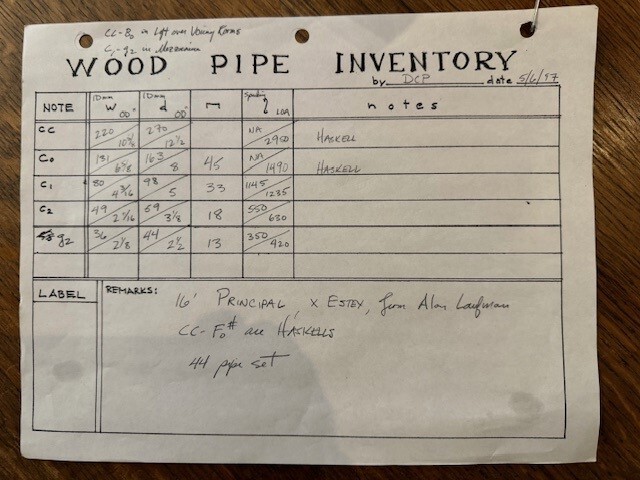 CC-B₀ in Loft over Voicing Rooms
C₁-g2 in Mezzanine
WOOD PIPE INVENTORY
by DCP date 5/6/97
NOTE ID mm W OD" ID mm d OD" Speaking LOA notes
CC 220 10⅝ 270 12½ NA 2950 HASKELL
C₀ 131 6⅝ 163 8 45 NA 1490 HASKELL
C₁ 80 4 3/16 98 5 33 1145 1285
C₂ 49 2 11/16 59 3⅛ 18 550 630
g2 36 2⅛ 44 2½ 13 350 420
LABEL REMARKS:
16' PRINCIPAL x ESTEY, from Alan Laufman
CC-F₀# are HASKELLS
44 pipe set